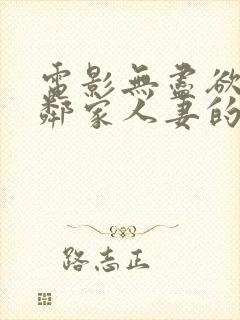 電影無盡欲
鄰家人妻的
路志正